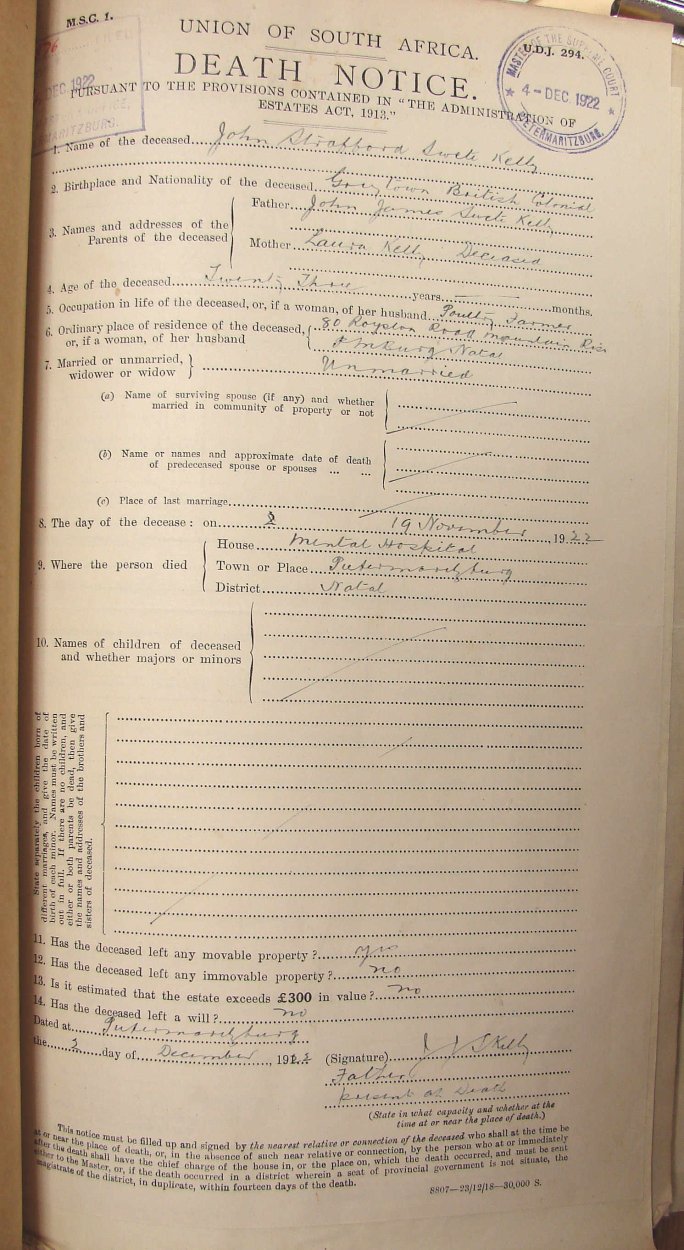 M.S.C. 1.
UNION OF SOUTH AFRICA.
U.D.J. 294.
DEATH NOTICE.
MASTER OF THE SUPREME COURT
4 - DEC. 1922
PIETERMARITZBURG.
DEC 1922
MARITZBURG.
PURSUANT TO THE PROVISIONS CONTAINED IN "THE ADMINISTRATION OF
ESTATES ACT, 1913."
1. Name of the deceased John Strafford Swete Kelly
2. Birthplace and Nationality of the deceased Greytown British Colonial
3. Names and addresses of the Parents of the deceased
Father John James Swete Kelly
Mother Laura Kelly Deceased
4. Age of the deceased Twenty Three years — months.
5. Occupation in life of the deceased, or, if a woman, of her husband Poultry Farmer
6. Ordinary place of residence of the deceased, 80 Royston Road Mountain Rise
or, if a woman, of her husband PMBurg Natal
7. Married or unmarried, widower or widow Unmarried
(a) Name of surviving spouse (if any) and whether
married in community of property or not
(b) Name or names and approximate date of death
of predeceased spouse or spouses ... ...
(c) Place of last marriage
8. The day of the decease: on 19 November, 1922
9. Where the person died
House Mental Hospital
Town or Place Pietermaritzburg
District Natal
10. Names of children of deceased
and whether majors or minors
State separately the children born of
different marriages, and give the date of
birth of each minor. Names must be written
out in full. If there are no children, and
either or both parents be dead, then give
the names and addresses of the brothers and
sisters of deceased.
11. Has the deceased left any movable property? yes
12. Has the deceased left any immovable property? no
13. Is it estimated that the estate exceeds £300 in value? no
14. Has the deceased left a will? no
Dated at Pietermaritzburg
the 2 day of December, 1922
(Signature) J J S Kelly
Father
present at Death
(State in what capacity and whether at the
time at or near the place of death.)
This notice must be filled up and signed by the nearest relative or connection of the deceased who shall at the time be
at or near the place of death, or, in the absence of such near relative or connection, by the person who at or immediately
after the death shall have the chief charge of the house in, or the place on, which the death occurred, and must be sent
either to the Master, or, if the death occurred in a district wherein a seat of provincial government is not situate, the
magistrate of the district, in duplicate, within fourteen days of the death.
8807—23/12/18—30,000 S.